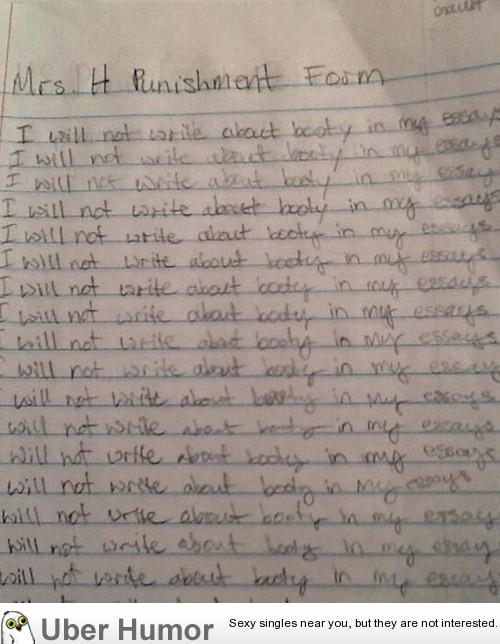 Mrs. H Punishment Form
I will not write about booty in my essays
I will not write about booty in my essays
I will not write about booty in my essay
I will not write about booty in my essays
I will not write about booty in my essays
I will not write about booty in my essays
I will not write about booty in my essays
I will not write about booty in my essays
I will not write about booty in my essays
will not write about booty in my essay
will not write about booty in my essays
will not write about booty in my essays
will not write about booty in my essays
will not write about booty in my essays
will not write about booty in my essay
will not write about booty in my essay
will not write about booty in my essay
Uber Humor
Sexy singles near you, but they are not interested.